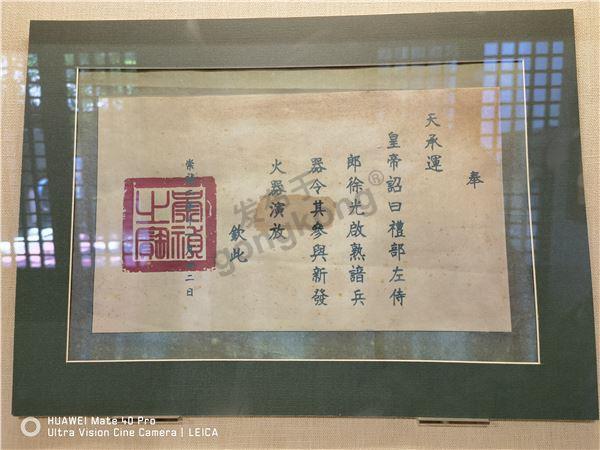 奉
天承運
皇帝詔曰禮部左侍
郎徐光啟熟諳兵
器令其參與新發
火器演放
欽此
崇禎
二日
崇禎之寶
gongkong®
HUAWEI Mate 40 Pro
Ultra Vision Cine Camera | LEICA